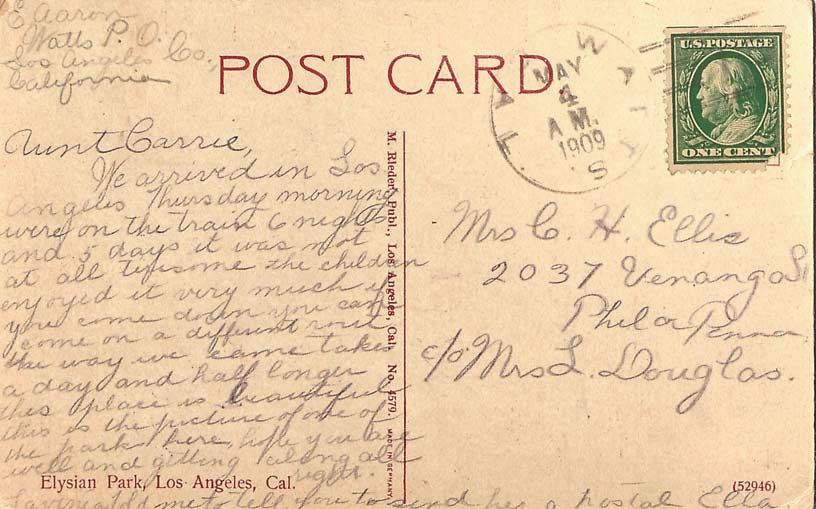 E Aaron
Watts P. O.
Los Angeles Co.,
California
POST CARD.
WATTS
MAY
4
A M.
1909
CAL.
U.S. POSTAGE
ONE CENT
Aunt Carrie,
We arrived in Los
Angeles Thursday morning
were on the train 6 nights
and 5 days it was not
at all tiresome the children
enjoyed it very much if
you come down you can
come on a different rout
the way we came takes
a day and half longer
this place is beautiful
this is the picture of one of
the park here, hope you are
well and gitting along all
right.
told me to tell you to send her a postal Ella
M. Rieder, Publ., Los Angeles, Cal. No. 4579. MADE IN GERMANY
Mrs C. H. Ellis
2037 Venango St
Phila Penna
c/o Mrs L. Douglas.
Elysian Park, Los Angeles, Cal.
(52946)